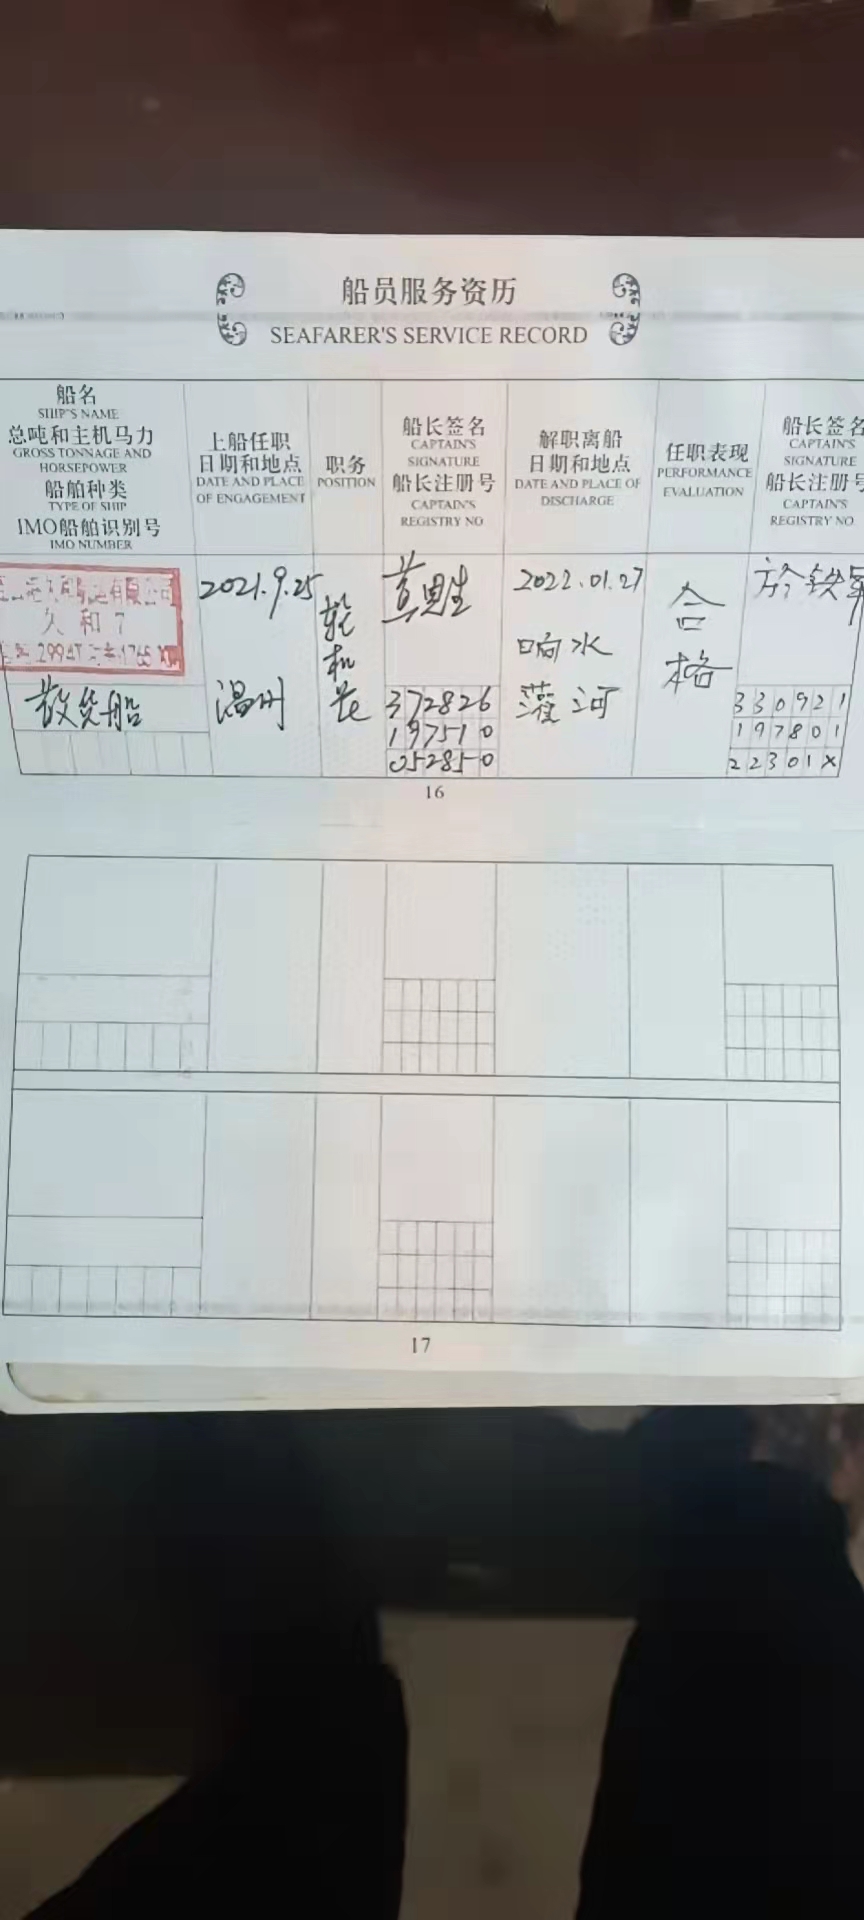 船员服务资历
SEAFARER'S SERVICE RECORD
船名
SHIP'S NAME
总吨和主机马力
GROSS TONNAGE AND
HORSEPOWER
船舶种类
TYPE OF SHIP
IMO船舶识别号
IMO NUMBER
上船任职
日期和地点
DATE AND PLACE
OF ENGAGEMENT
职务
POSITION
船长签名
CAPTAIN'S
SIGNATURE
船长注册号
CAPTAIN'S
REGISTRY NO
解职离船
日期和地点
DATE AND PLACE OF
DISCHARGE
任职表现
PERFORMANCE
EVALUATION
船长签名
CAPTAIN'S
SIGNATURE
船长注册号
CAPTAIN'S
REGISTRY NO
有限公司
久和7
2994T 1765 KW
散货船
2021.9.25
温州
轮机长
372826
197510
052850
2022.01.27
响水
灌河
合格
330921
197801
22301X
16
17